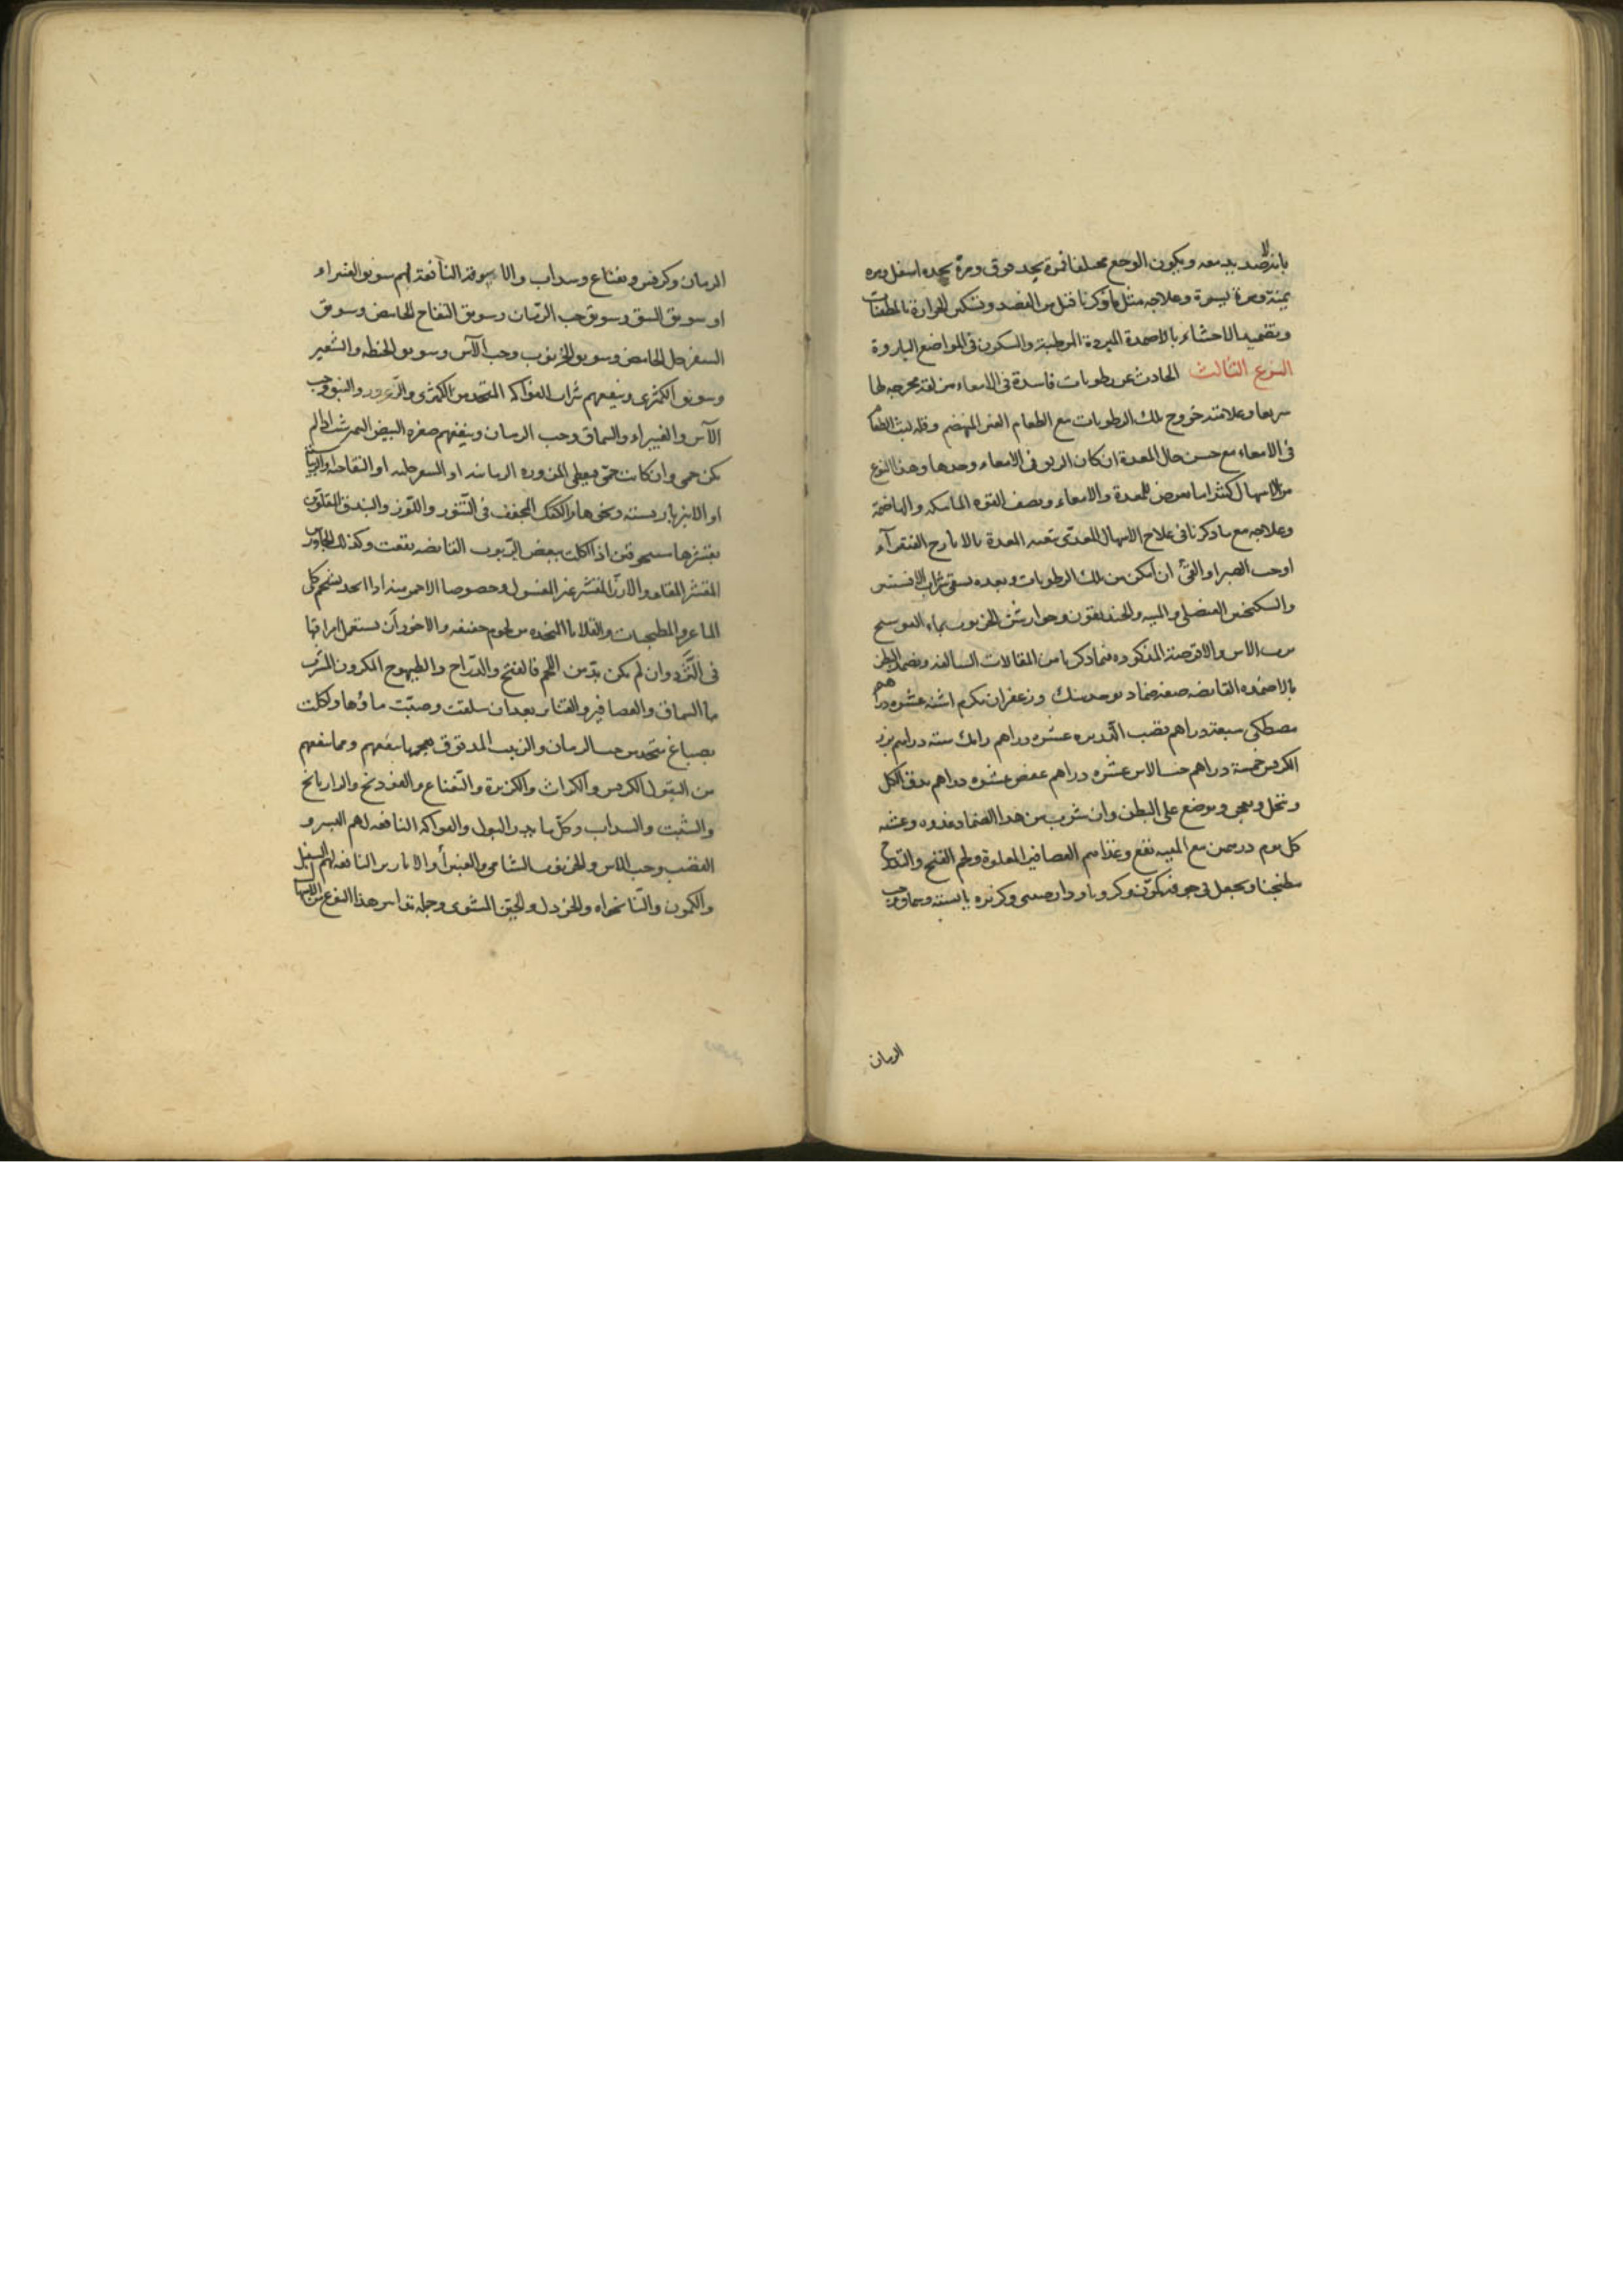 ويكون الوجع مختلفا فمرة يجد فوق ومرة يجده اسفل ومره
يمنة ومرة يسرة وعلاجه مثل ما ذكرنا قبل من الفصد وتسكين الحرارة بالمطفئات
وتضميد الاحشاء بالاضمدة المبردة المرطبة والسكون فى المواضع الباردة
النوع الثالث الحادث عن رطوبات فاسدة فى الامعاء مزلقة مخرجه لها
سريعا وعلامته خروج تلك الرطوبات مع الطعام الغير المنهضم وقله لبث الطعام
فى الامعاء مع حسن حال المعدة ان كان الزلق فى الامعاء وحدها وهذا النوع
من الاسهال كثيرا ما يعرض للمعدة والامعاء ويضعف القوه الماسكه والهاضمة
وعلاجه مع ما ذكرنا فى علاج الاسهال المعدى تنقيه المعدة بالايارج الفيقرآء
اوحب الصبر او القئ ان امكن من تلك الرطوبات وبعده يسقى شراب الافسنتين
والسكنجبين العنصلى والميبه والخنديقون وجوارشن الخرنوب بماء العوسج
ورب الاس والاقرصة المذكوره فيما ذكرنا من المقالات السالفة ويضمد البطن
بالاضمده القابضه صفه ضماد يوخذ سك وزعفران مكرم اثنى عشر دراهم
مصطكى سبعة دراهم قصب الذريره عشره دراهم رامك سته دراهم بزر
الكرفس خمسة دراهم حب الاس عشره دراهم عفص عشره دراهم يدق الكل
وينخل ويعجن ويوضع على البطن وان شرب من هذا الضماد غدوه وعشيه
كل يوم درهمين مع الميبه نفع وغذاهم العصافير المقلوة ولحم القبج والتدرج
مطجنا ويجعل فى جوفه كمون وكرويا ودارصينى وكزبره يابسة وحب
الرمان
الرمان وكرفس ونعناع وسداب والاسوقة النافعة لهم سويق الغبيراء
او سويق النبق وسويق حب الرمان وسويق التفاح الحامض وسويق
السفرجل الحامض وسويق الخرنوب وحب الآس وسويق الحنطه والشعير
وسويق الكمثرى وينفعهم شراب الفواكه المتخذ من الكمثرى والزعرور والنبق وحب
الآس والغبيراء والسماق وحب الرمان وينفعهم صفره البيض النيمرشت ان لم
يكن حمى وان كانت حمى يعطى المزوره الرمانيه او السفرجليه او التفاحيه
او الانبرباريسية ونحوها والكعك المجفف فى التنور واللوز والبندق المقلوين
بقشرها مسحوقين اذا اكلت ببعض الربوب القابضه نفعت وكذلك الجاورس
المقشر المقلو والارز المقشر غير المغسول وخصوصا الاحمر منه اذا اتخذ بشحم كلى
الماعز والمطجنات والقلايا المتخذه من لحوم خفيفه والاجود ان يستعمل امراقها
فى الثرد وان لم يكن بد من اللحم فالقبج والدراج والطيهوج
ماء السماق والعصافير والقنابر بعد ان سلقت وصبت ماؤها واكلت
بصباغ يتخذ من حب الرمان والزبيب المدقوق بعجمها ينفعهم ومما ينفعهم
من البقول الكرفس والكراث والكزبرة والنعناع والفودنج والرازيانج
والشبت والسداب وكل ما يدر البول والفواكه النافعه لهم البسر و
القضب وحب الاس والخرنوب الشامى والغبيراء والابازير النافعه لهم السنبل
والكمون والنانخواه والخردل والجبن المشوى وجمله تدابير هذا النوع من الاسهال